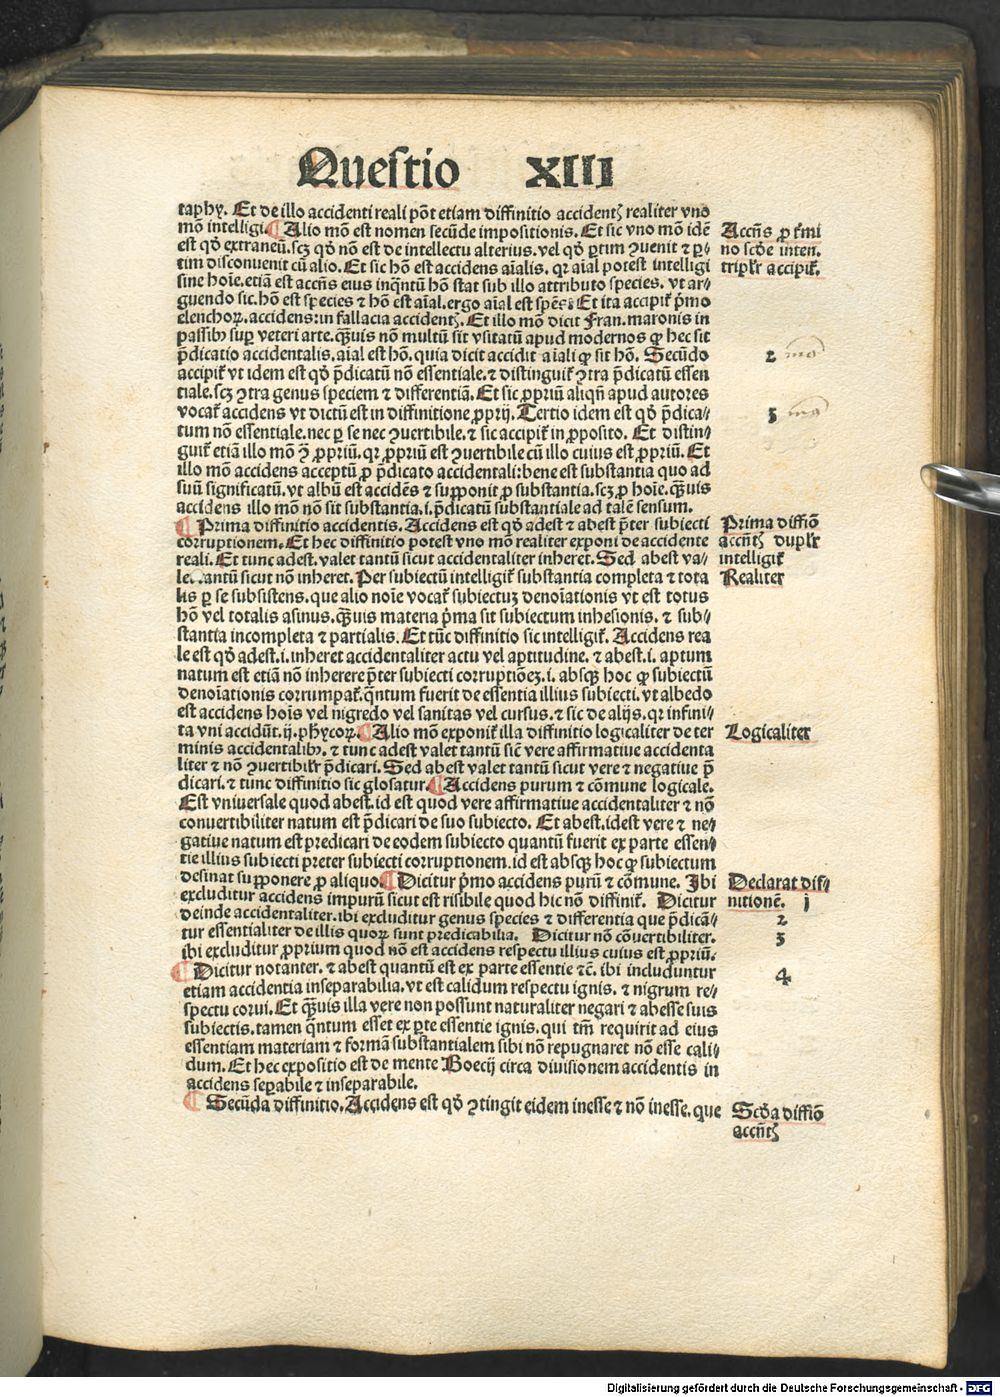 Questio XIII
taphy. Et de illo accidenti reali pōt etiam diffinitio accidentꝭ realiter vno
mō intelligi. ¶ Alio mō est nomen secūde impositionis. Et sic vno mō idē
est qđ extraneū. scꝫ qđ nō est de intellectu alterius. vel qđ ꝑtim ꝯuenit ⁊ ꝑ-
tim disconuenit cū alio. Et sic hō est accidens aīalis. qꝛ aīal potest intelligi
sine hoīe. etiā est accn̄s eius inqꝫntū hō stat sub illo attributo species. vt ar-
guendo sic. hō est species ⁊ hō est aīal. ergo aīal est spēs: Et ita accipiẜ p̄mo
elenchoꝝ. accidens: in fallacia accidentꝭ. Et illo mō dicit Fran. maronis in
passibꝰ suꝑ veteri arte. qꝫuis nō multū sit vsitatū apud modernos ꝙ hec sit
p̄dicatio accidentalis. aīal est hō. quia dicit accidit aīali ꝙ sit hō. Secūdo
accipiẜ vt idem est qđ p̄dicatū nō essentiale. ⁊ distinguiẜ ꝯtra p̄dicatū essen
tiale. scꝫ ꝯtra genus speciem ⁊ differentiā. Et sic ꝓpriū aliqn̄ apud autores
vocaẜ accidens vt dictū est in diffinitione ꝓprij. Tertio idem est qđ p̄dica-
tum nō essentiale. nec ꝑ se nec ꝯuertibile. ⁊ sic accipiẜ in ꝓposito. Et distin-
guiẜ etiā illo mō ꝯ̄ ꝓpriū. qꝛ ꝓpriū est ꝯuertibile cū illo cuius est ꝓpriū. Et
illo mō accidens acceptū ꝓ p̄dicato accidentali: bene est substantia quo ad
suū significatū. vt albū est accidēs ⁊ supponit ꝓ substantia. scꝫ ꝓ hoīe. qꝫuis
accidens illo mō nō sit substantia. i. p̄dicatū substantiale ad talē sensum.
¶ Prima diffinitio accidentis. Accidens est qđ adest ⁊ abest p̄ter subiecti
corruptionem. Et hec diffinitio potest vno mō realiter exponi de accidente
reali. Et tunc adest. valet tantū sicut accidentaliter inheret. Sed abest va-
le. tantū sicut nō inheret. Per subiectū intelligiẜ substantia completa ⁊ tota
lis ꝑ se subsistens. que alio noīe vocaẜ subiectuꝫ denoīationis vt est totus
hō vel totalis asinus. qꝫuis materia p̄ma sit subiectum inhesionis. ⁊ sub-
stantia incompleta ⁊ partialis. Et tūc diffinitio sic intelligiẜ. Accidens rea
le est qđ adest. i. inheret accidentaliter actu vel aptitudine. ⁊ abest. i. aptum
natum est etiā nō inherere p̄ter subiecti corruptiōeꝫ. i. absqꝫ hoc ꝙ subiectū
denoīationis corrumpaẜ. qꝫntum fuerit de essentia illius subiecti. vt albedo
est accidens hoīs vel nigredo vel sanitas vel cursus. ⁊ sic de alijs. qꝛ infini-
ta vni accidūt. ij. phycoꝝ. ¶ Alio mō exponiẜ illa diffinitio logicaliter de ter
minis accidentalibꝰ. ⁊ tunc adest valet tantū sicē vere affirmatiue accidenta
liter ⁊ nō ꝯuertibilr̄ p̄dicari. Sed abest valet tantū sicut vere ⁊ negatiue p̄
dicari. ⁊ tunc diffinitio sic glosatur. ¶ Accidens purum ⁊ cōmune logicale.
Est vniuersale quod abest. id est quod vere affirmatiue accidentaliter ⁊ nō
conuertibiliter natum est p̄dicari de suo subiecto. Et abest. idest vere ⁊ ne-
gatiue natum est predicari de eodem subiecto quantū fuerit ex parte essen-
tie illius subiecti preter subiecti corruptionem. id est absqꝫ hoc ꝙ subiectum
desinat supponere ꝓ aliquo. ¶ Dicitur p̄mo accidens purū ⁊ cōmune. Ibi
excluditur accidens impurū sicut est risibile quod hic nō diffiniẜ. Dicitur
deinde accidentaliter. ibi excluditur genus species ⁊ differentia que p̄dicā-
tur essentialiter de illis quoꝝ sunt predicabilia. Dicitur nō cōuertibiliter.
ibi excluditur ꝓprium quod nō est accidens respectu illius cuius est ꝓpriū.
¶ Dicitur notanter. ⁊ abest quantū est ex parte essentie ⁊c̄. ibi includuntur
etiam accidentia inseparabilia. vt est calidum respectu ignis. ⁊ nigrum re-
spectu corui. Et qꝫuis illa vere non possunt naturaliter negari ⁊ abesse suis
subiectis. tamen qꝫntum esset ex ꝑte essentie ignis. qui tm̄ requirit ad eius
essentiam materiam ⁊ formā substantialem sibi nō repugnaret nō esse cali-
dum. Et hec expositio est de mente Boecij circa diuisionem accidentis in
accidens seꝑabile ⁊ inseparabile.
¶ Secūda diffinitio. Accidens est qđ ꝯtingit eidem inesse ⁊ nō inesse. que
Accn̄s ꝓ ẜmi
no scđe inten.
triplr̄ accipiẜ.
2 mo
3 mo
Prima diffiō
accn̄tꝭ duplr̄
intelligiẜ
Realiter
Logicaliter
Declarat dif-
nitionē. 1
2
3
4
Scđa diffiō
accn̄tꝭ
Digitalisierung gefördert durch die Deutsche Forschungsgemeinschaft - DFG